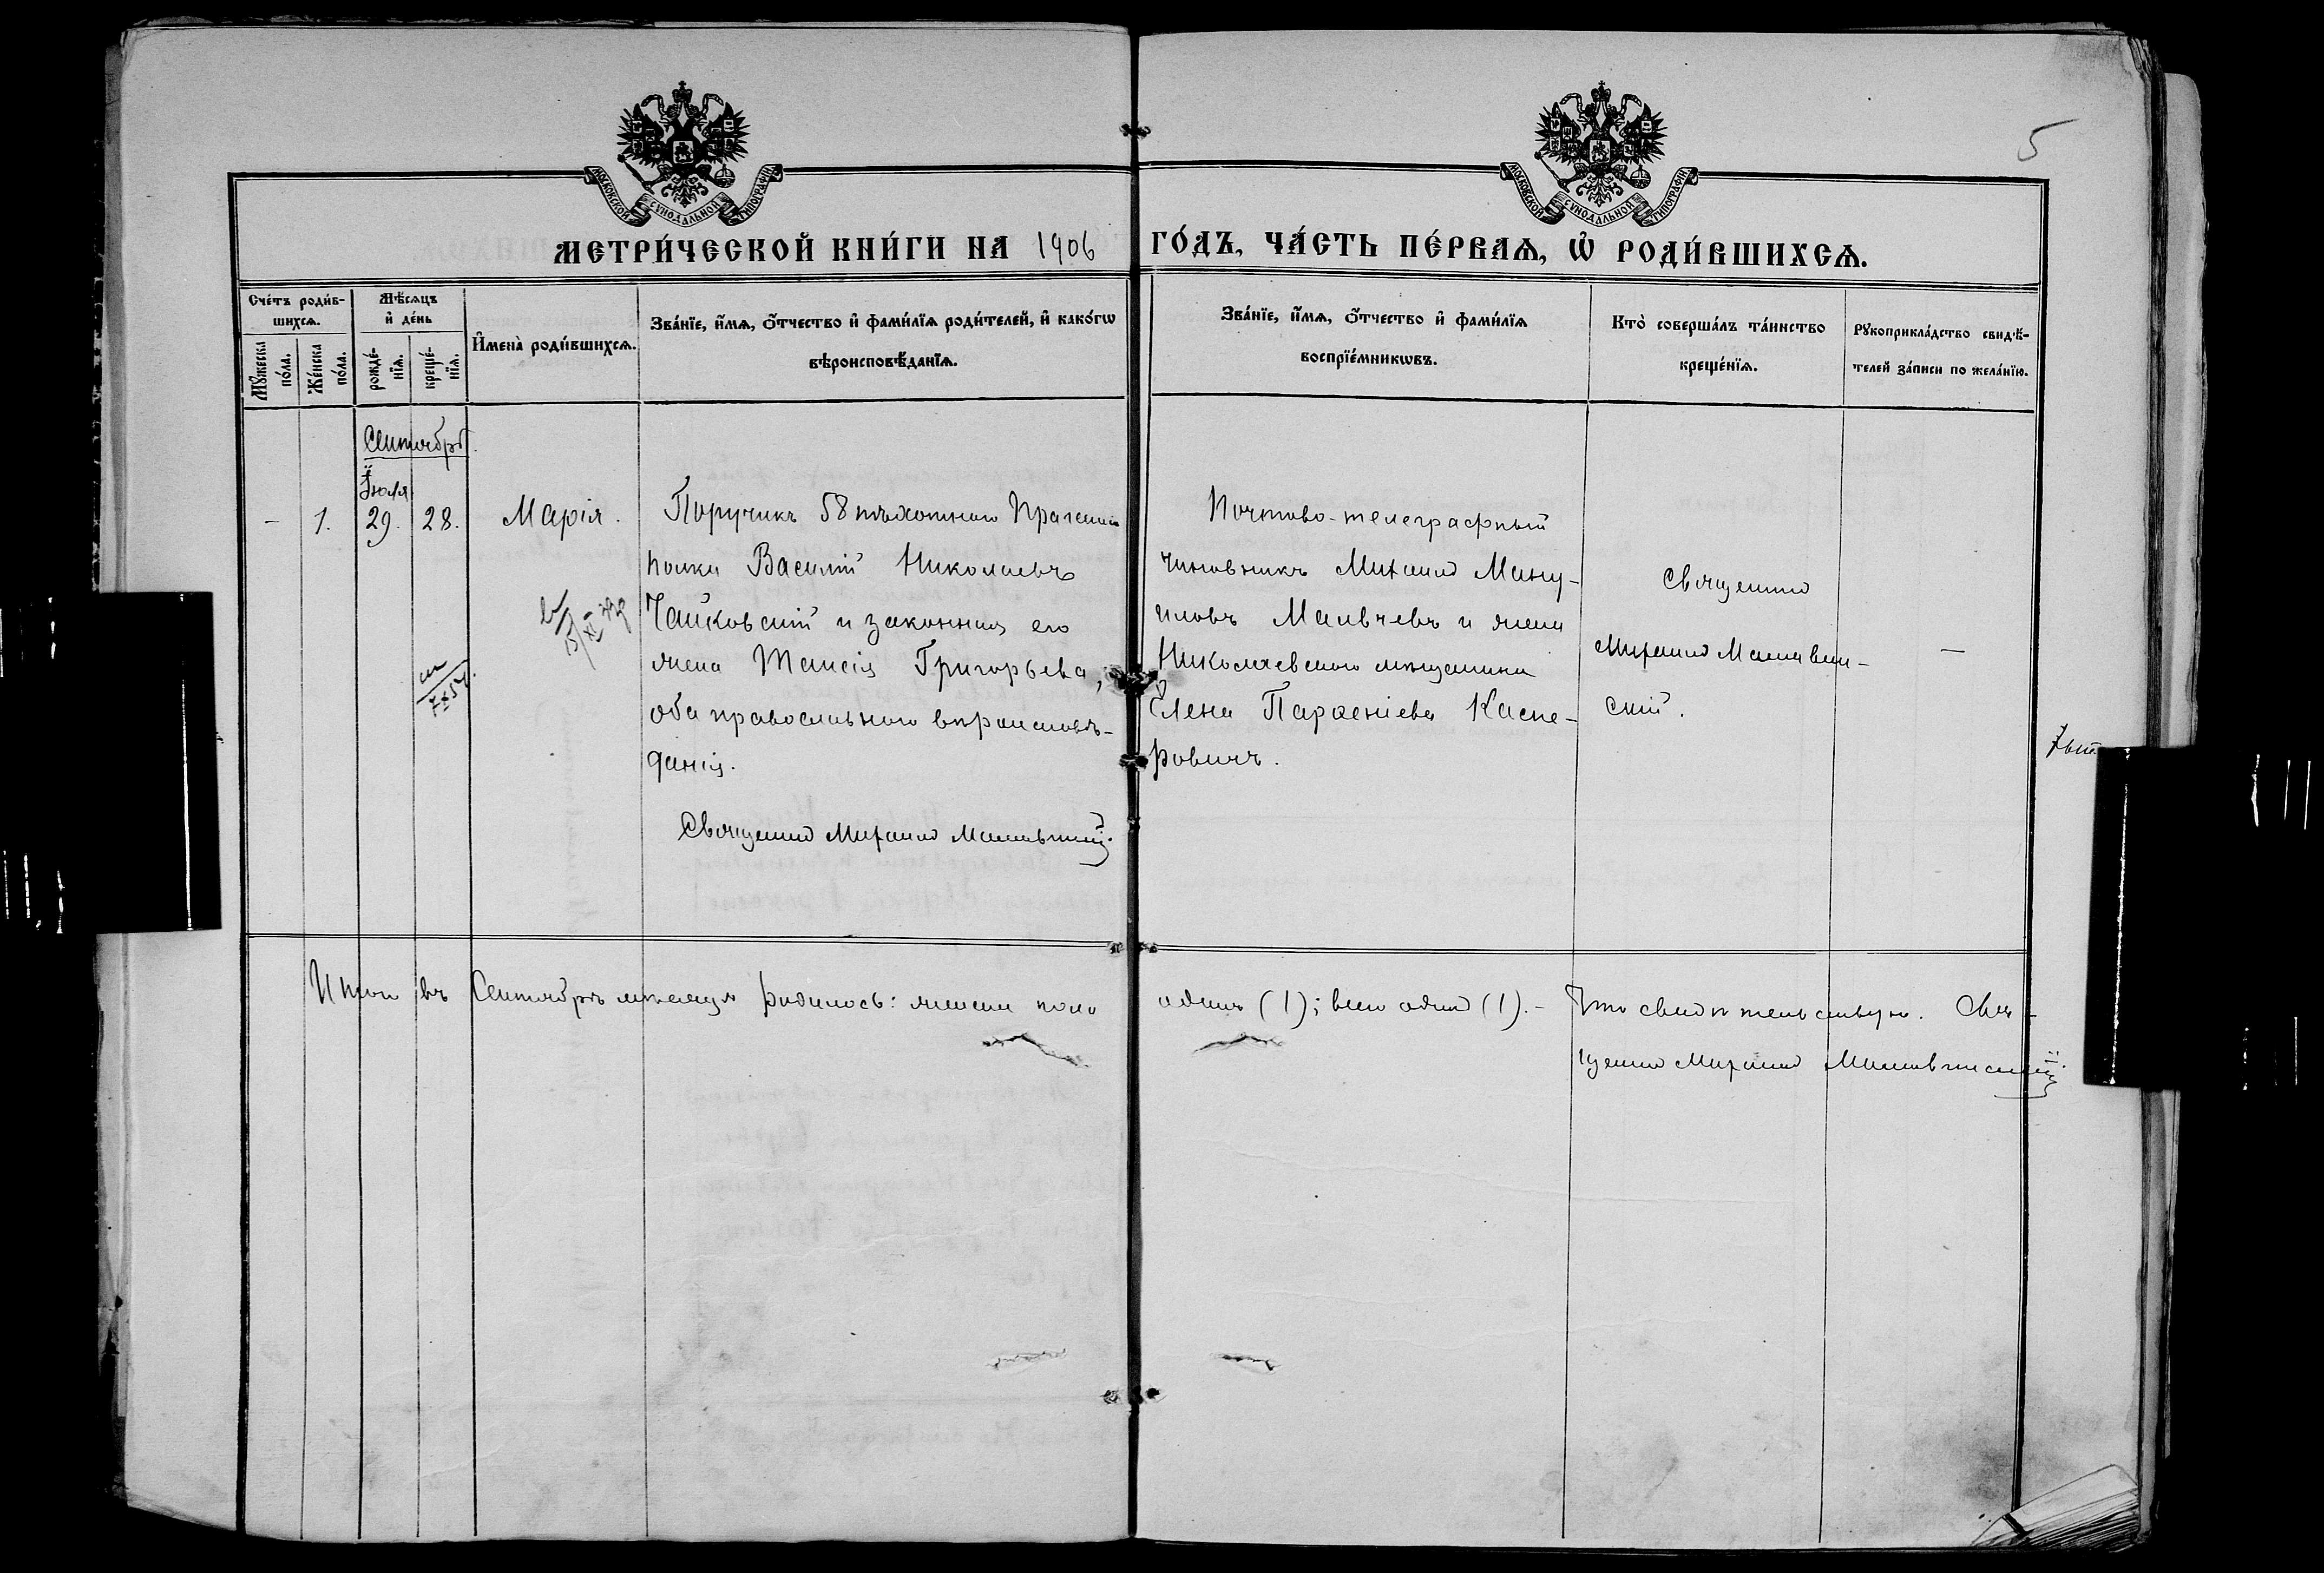 5
МОСКОВСКОЙ СѴНОДАЛЬНОЙ ТИПОГРАФІИ
МОСКОВСКОЙ СѴНОДАЛЬНОЙ ТИПОГРАФІИ
МЕТРИ́ЧЕСКОЙ КНИ́ГИ НА 1906 ГО́ДЪ, ЧА́СТЬ ПЕ́РВАѦ, Ѡ҆ РОДИ́ВШИХСѦ.
Сче́тъ роди́в-
шихсѧ.
Мѹ́жеска по́ла.
Же́нска по́ла.
Мѣ́сѧцъ
и҆ де́нь
рожде́-
нїѧ.
креще́-
нїѧ.
И҆мена̀ роди́вшихсѧ.
Зва́нїе, и҆́мѧ, ѻ҆́тчество и҆ фами́лїѧ роди́телей, и҆ како́гѡ
вѣроисповѣ́данїѧ.
Зва́нїе, и҆́мѧ, ѻ҆́тчество и҆ фами́лїѧ
воспрїе́мникѡвъ.
Кто̀ соверша́лъ та́инство
креще́нїѧ.
Рѹкоприкла́дство свидѣ́-
телей за́писи по жела́нїю.
Сентябрь.
Іюля
- 1. 29. 28. Марія.
Поручикъ 58 пѣхотнаго Прагскаго
полка Василій Николаевъ
Чайковскій и законная его
жена Таисія Григорьева,
оба православнаго вѣроисповѣ-
данія.
Священникъ Михаилъ
Почтово-телеграфный
чиновникъ Михаилъ Ману-
иловъ Мальчевъ и жена
Николаевскаго мещанина
Елена Парѳеніева Каспе-
ровичъ.
Священникъ
Михаилъ
скій.
—
Итого въ Сентябрѣ мѣсяцѣ родилось: женска пола одинъ (1); всего одинъ (1). - Что свидѣтельствую. Свя-
щенникъ Михаилъ